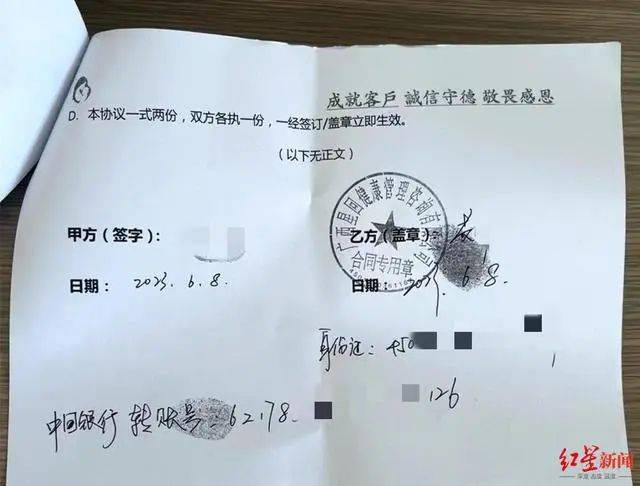 成就客戶 誠信守德 敬畏感恩
D. 本协议一式两份，双方各执一份，一经签订/盖章立即生效。
（以下无正文）
甲方（签字）：
乙方（盖章）：
健康管理咨询有
合同专用章
日期： 2023. 6. 8.
日期： 6. 8.
身份证：450
中国银行 转账号：62178
126
红星新闻
深度 态度 温度